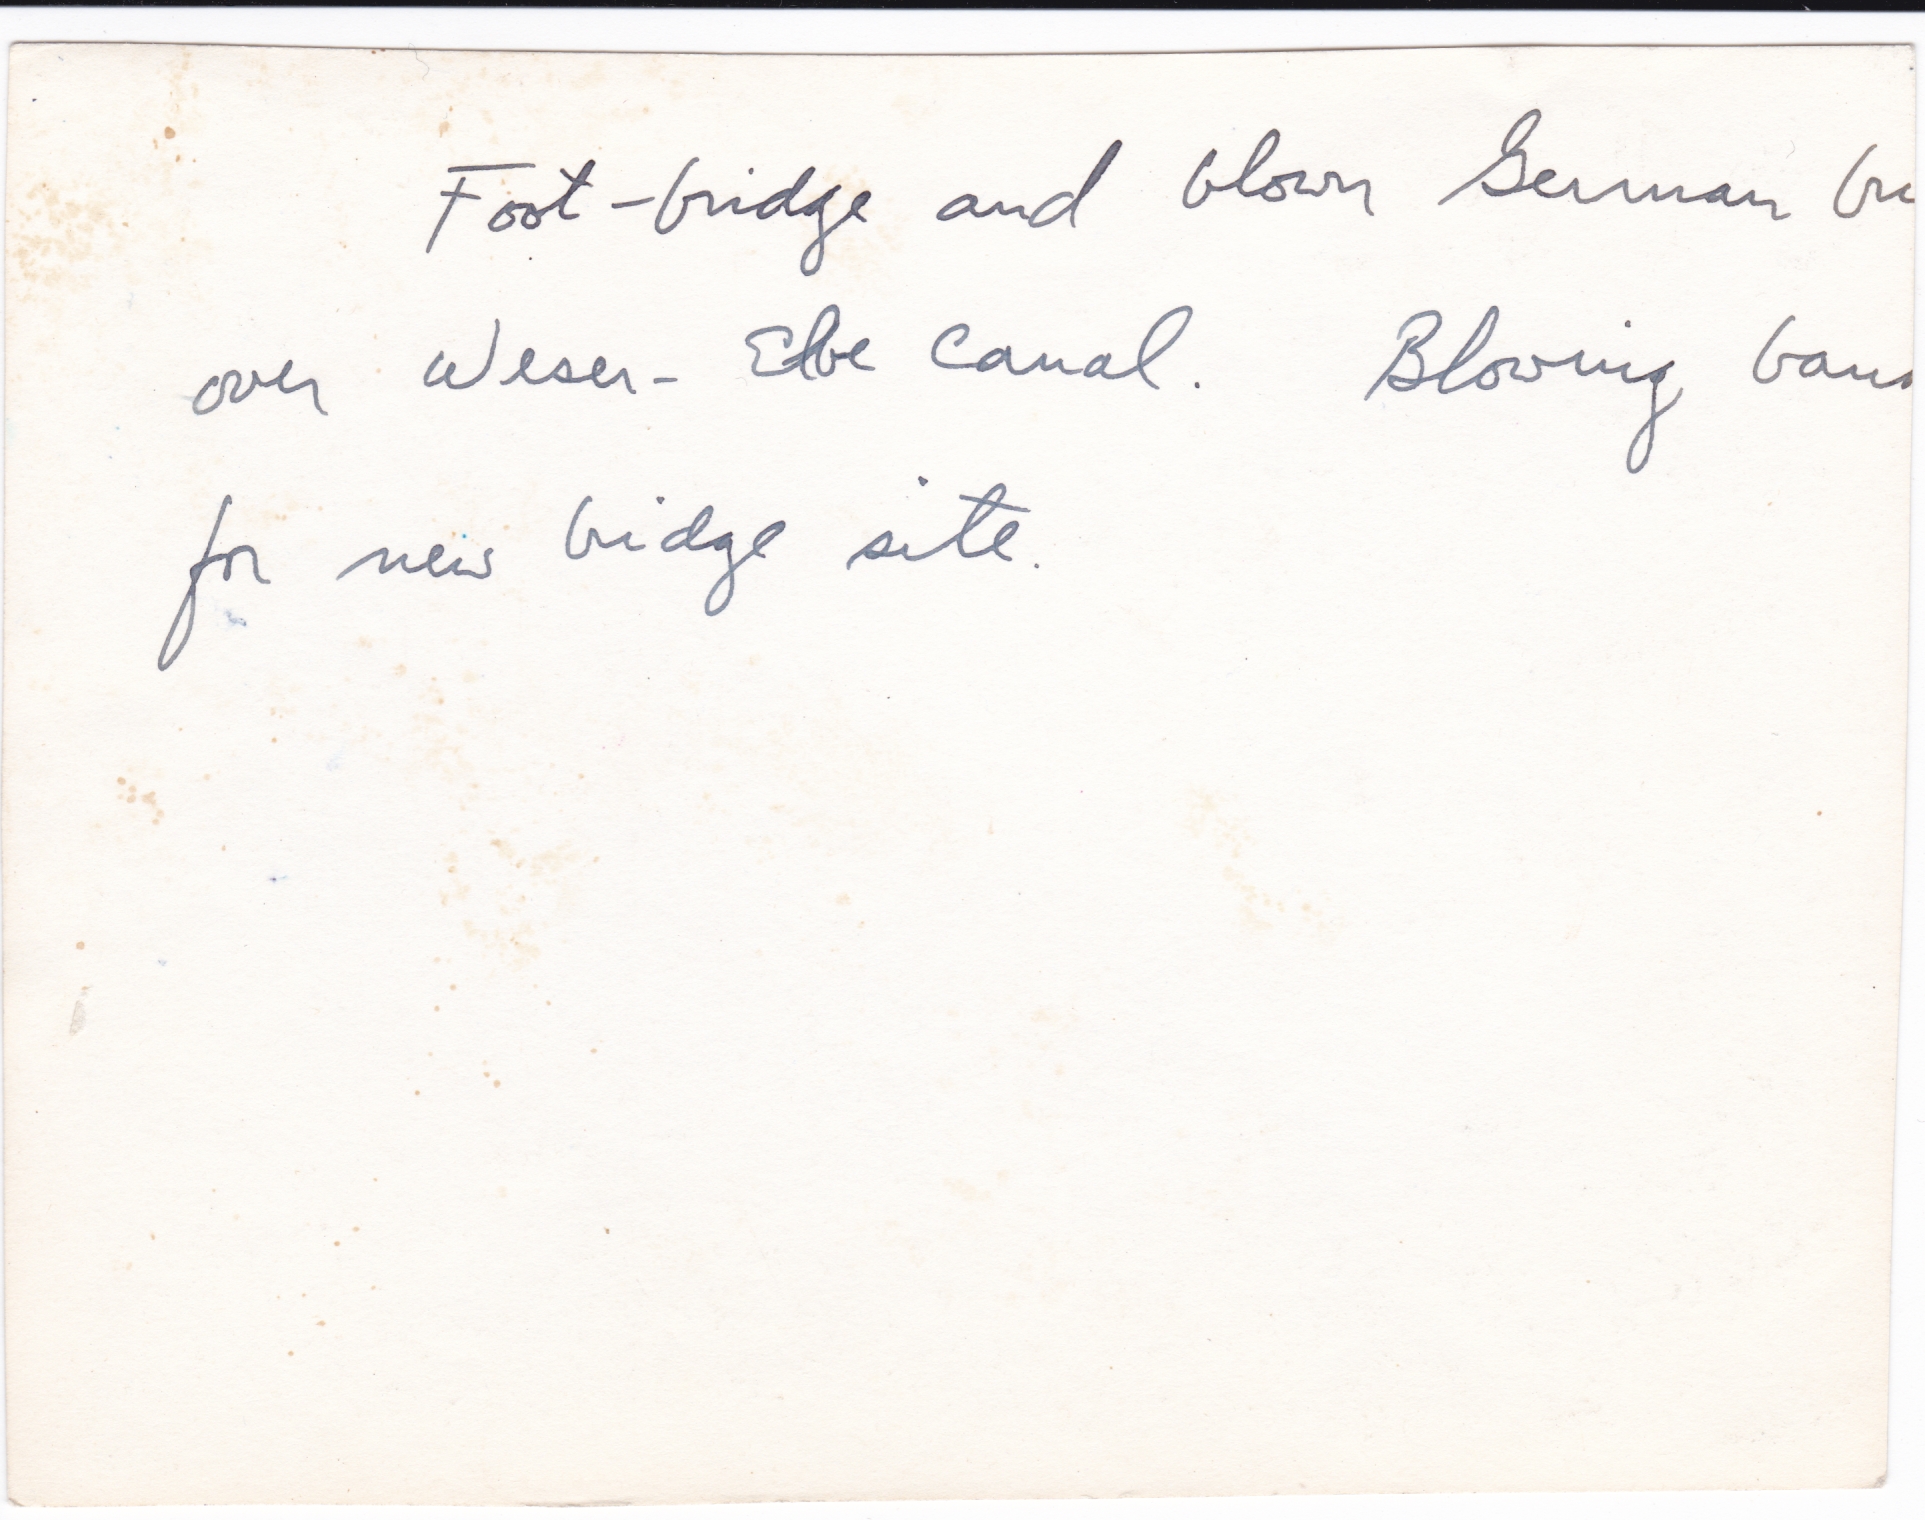 Foot-bridge and blown German bri
over Weser-Elbe Canal. Blowing ban
for new bridge site.